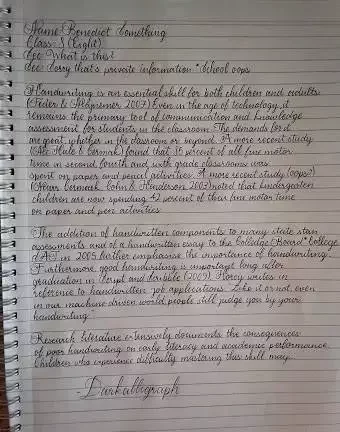 Name: Benedict Something
Class: 8 (Eight)
Sec: What is this?
See: Sorry that's private information *School oops
Handwriting is an essential skill for both children and adults
(Feder & Majnemer, 2007) Even in the age of technology, it
remains the primary tool of communication and knowledge
assessment for students in the classroom. The demands for it
are great, whether in the classroom or beyond. A more recent study
(Mc Hale & Cermak) found that 85 percent of all fine motor
time in second, fourth and sixth grade classrooms was
spent on paper and pencil activities. A more recent study (oops?)
(Marr, Cermak, Cohn & Henderson, 2003) noted that kindergarten
children are now spending 42 percent of their fine motor time
on paper and peer activities
The addition of handwritten components to many state stan
assessments and of a handwritten essay to the Colledge Board *College
SAT in 2005 further emphasise the importance of handwriting.
Furthermore, good handwriting is important long after
graduation. In Script and Scribble (2009) Florey writes in
reference to handwritten job applications: Like it or not, even
in our machine driven world, people still judge you by your
handwriting"
Research literature extensively documents the consequences
of poor handwriting on early literacy and academic performance.
Children who experience difficulty mastering this skill may...
- Darkalligraph